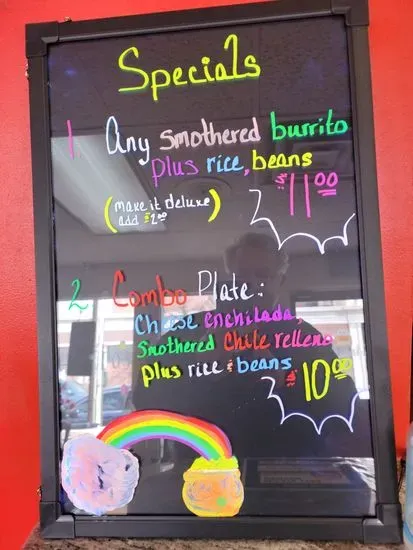 Specials
1. Any smothered burrito
plus rice, beans
(make it deluxe
add $2.00)
$11.00
2 Combo Plate:
Cheese enchilada,
Smothered Chile relleno
plus rice & beans
$10.00